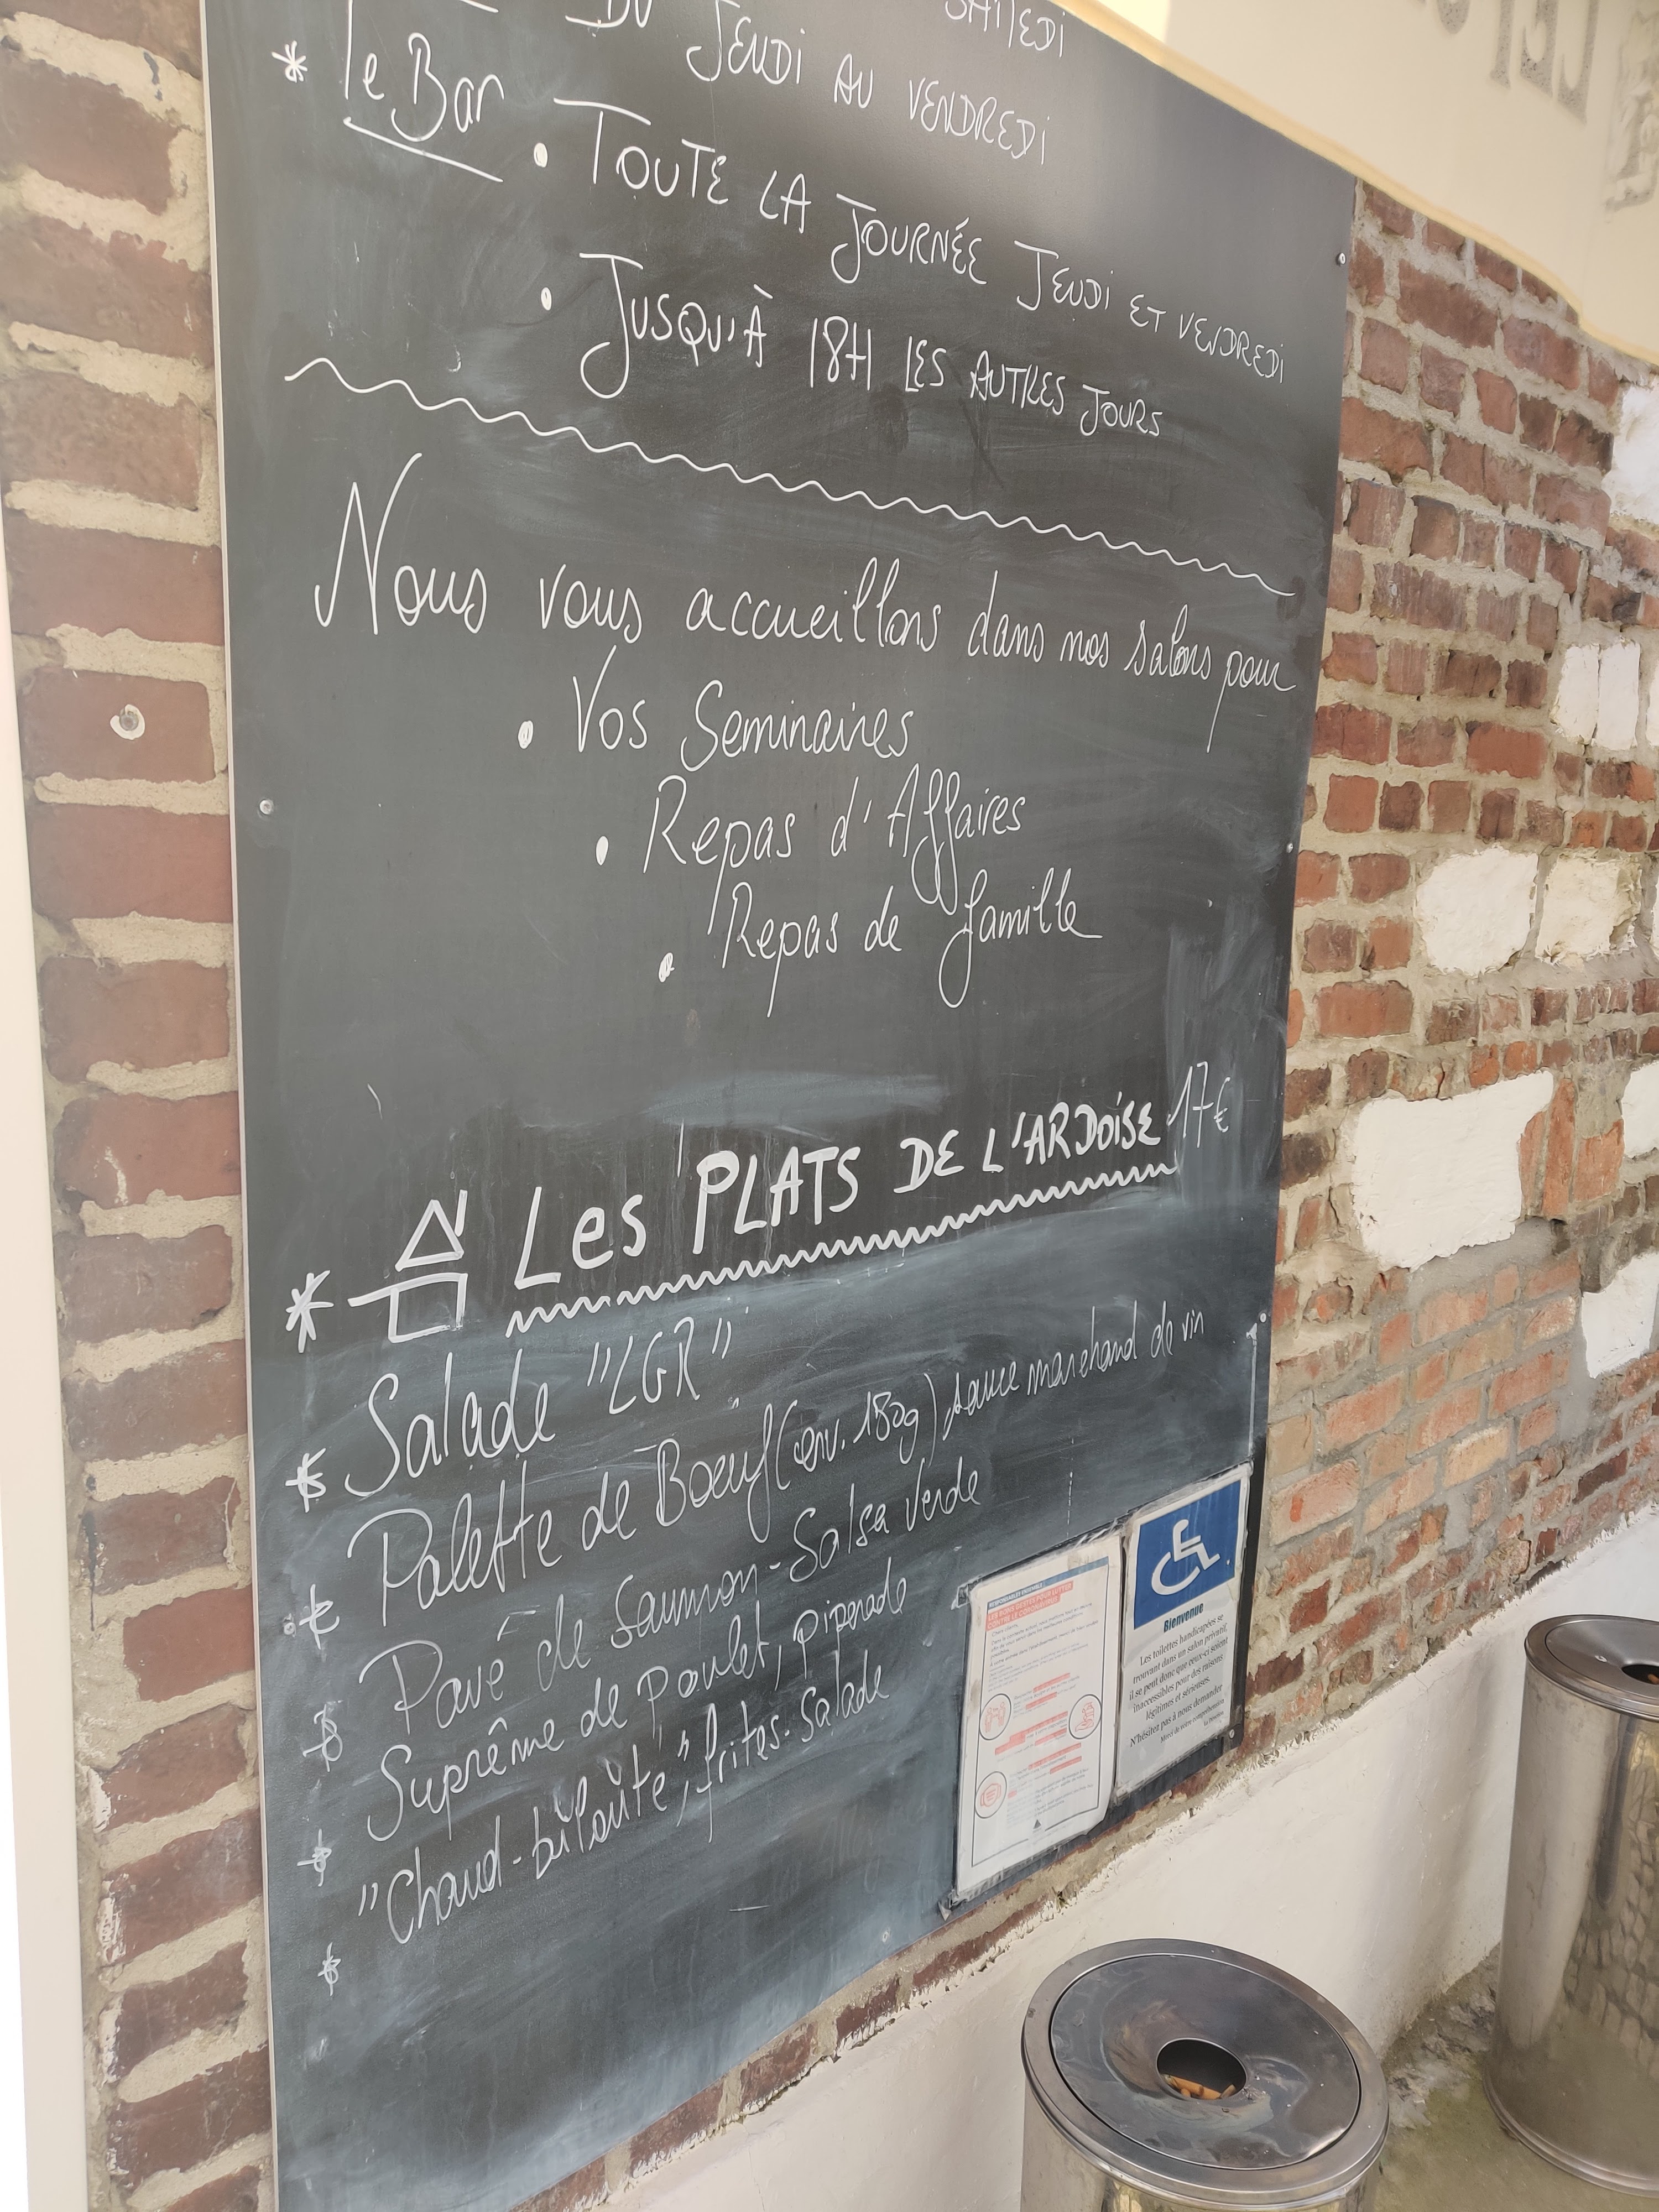 SAMEDI
DU JEUDI AU VENDREDI
* le Bar
• TOUTE LA JOURNÉE JEUDI ET VENDREDI
• JUSQU'À 18H LES AUTRES JOURS
Nous vous accueillons dans nos salons pour
• Vos Seminaires
• Repas d'Affaires
• Repas de famille
Les PLATS DE L'ARDOISE 17€
* Salade "LGR"
* Palette de Bœuf (env. 180g) sauce marchand de vin
* Pavé de Saumon - Salsa Verde
* Suprême de Poulet, Piperade
* "Chaud-biloute", frites-Salade
*
RESPONSABLES ENSEMBLE
Bienvenue
Les toilettes handicapées se
trouvant dans un salon privatif,
il se peut donc que ceux-ci soient
inaccessibles pour des raisons
légitimes et sérieuses.
N'hésitez pas à nous demander
Merci de votre compréhension